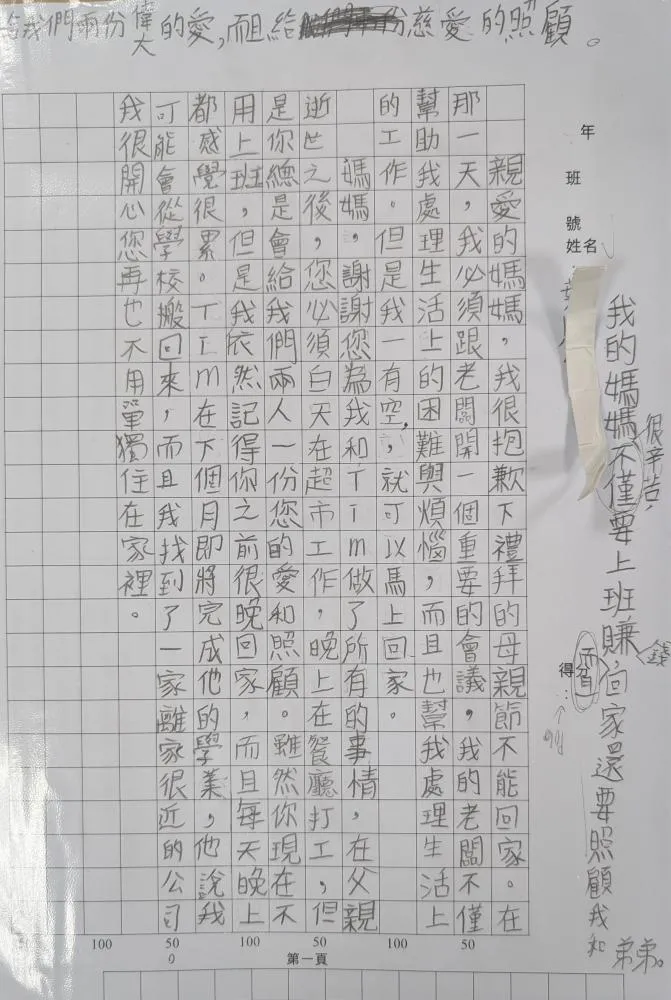 我們兩份偉大的愛，而且給慈愛的照顧。
我的媽媽不僅要上班賺，回家還要照顧我和弟弟。
很辛苦，
錢
而且
年 班 號
姓名：
得分：
親愛的媽媽，我很抱歉下禮拜的母親節不能回家。在
那一天，我必須跟老闆開一個重要的會議，我的老闆不僅
幫助我處理生活上的困難與煩惱，而且也幫我處理生活上
的工作。但是我一有空，就可以馬上回家。
媽媽，謝謝您為我和Tim做了所有的事情，在父親
逝世之後，您必須白天在超市工作，晚上在餐廳打工，但
是你總是會給我們兩人一份您的愛和照顧。雖然你現在不
用上班，但是我依然記得你之前很晚回家，而且每天晚上
都感覺很累。TIm在下個月即將完成他的學業，他說我
可能會從學校搬回來，而且我找到了一家離家很近的公司
我很開心您再也不用單獨住在家裡。
100 50 100 50 100 50
第一頁